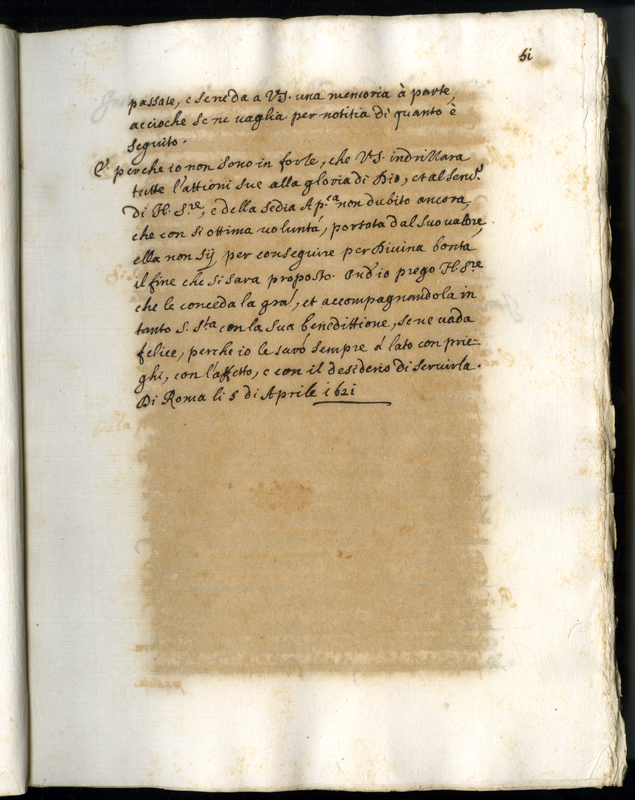 51
passate, e se ne da a V.S. una memoria à parte,
accioche se ne vaglia per notitia di quanto è
seguito.
E perche io non sono in forse, che V.S. indrizzara
tutte l'attioni sue alla gloria di Dio, et al serv.o
di N. S.re, e della Sedia Ap.ca non dubito ancora,
che con si ottima voluntá, portata dal suo valore
ella non sij, per conseguire per Divina bonta
il fine che si sara proposto. Ond'io prego N. S.re
che le conceda la gra', et accompagnandola in
tanto S. S.ta con la sua benedittione, se ne vada
felice, perche io le sarò sempre à lato con prie=
ghi, con l'affetto, e con il desiderio di servirla.
Di Roma li 5 di Aprile 1621